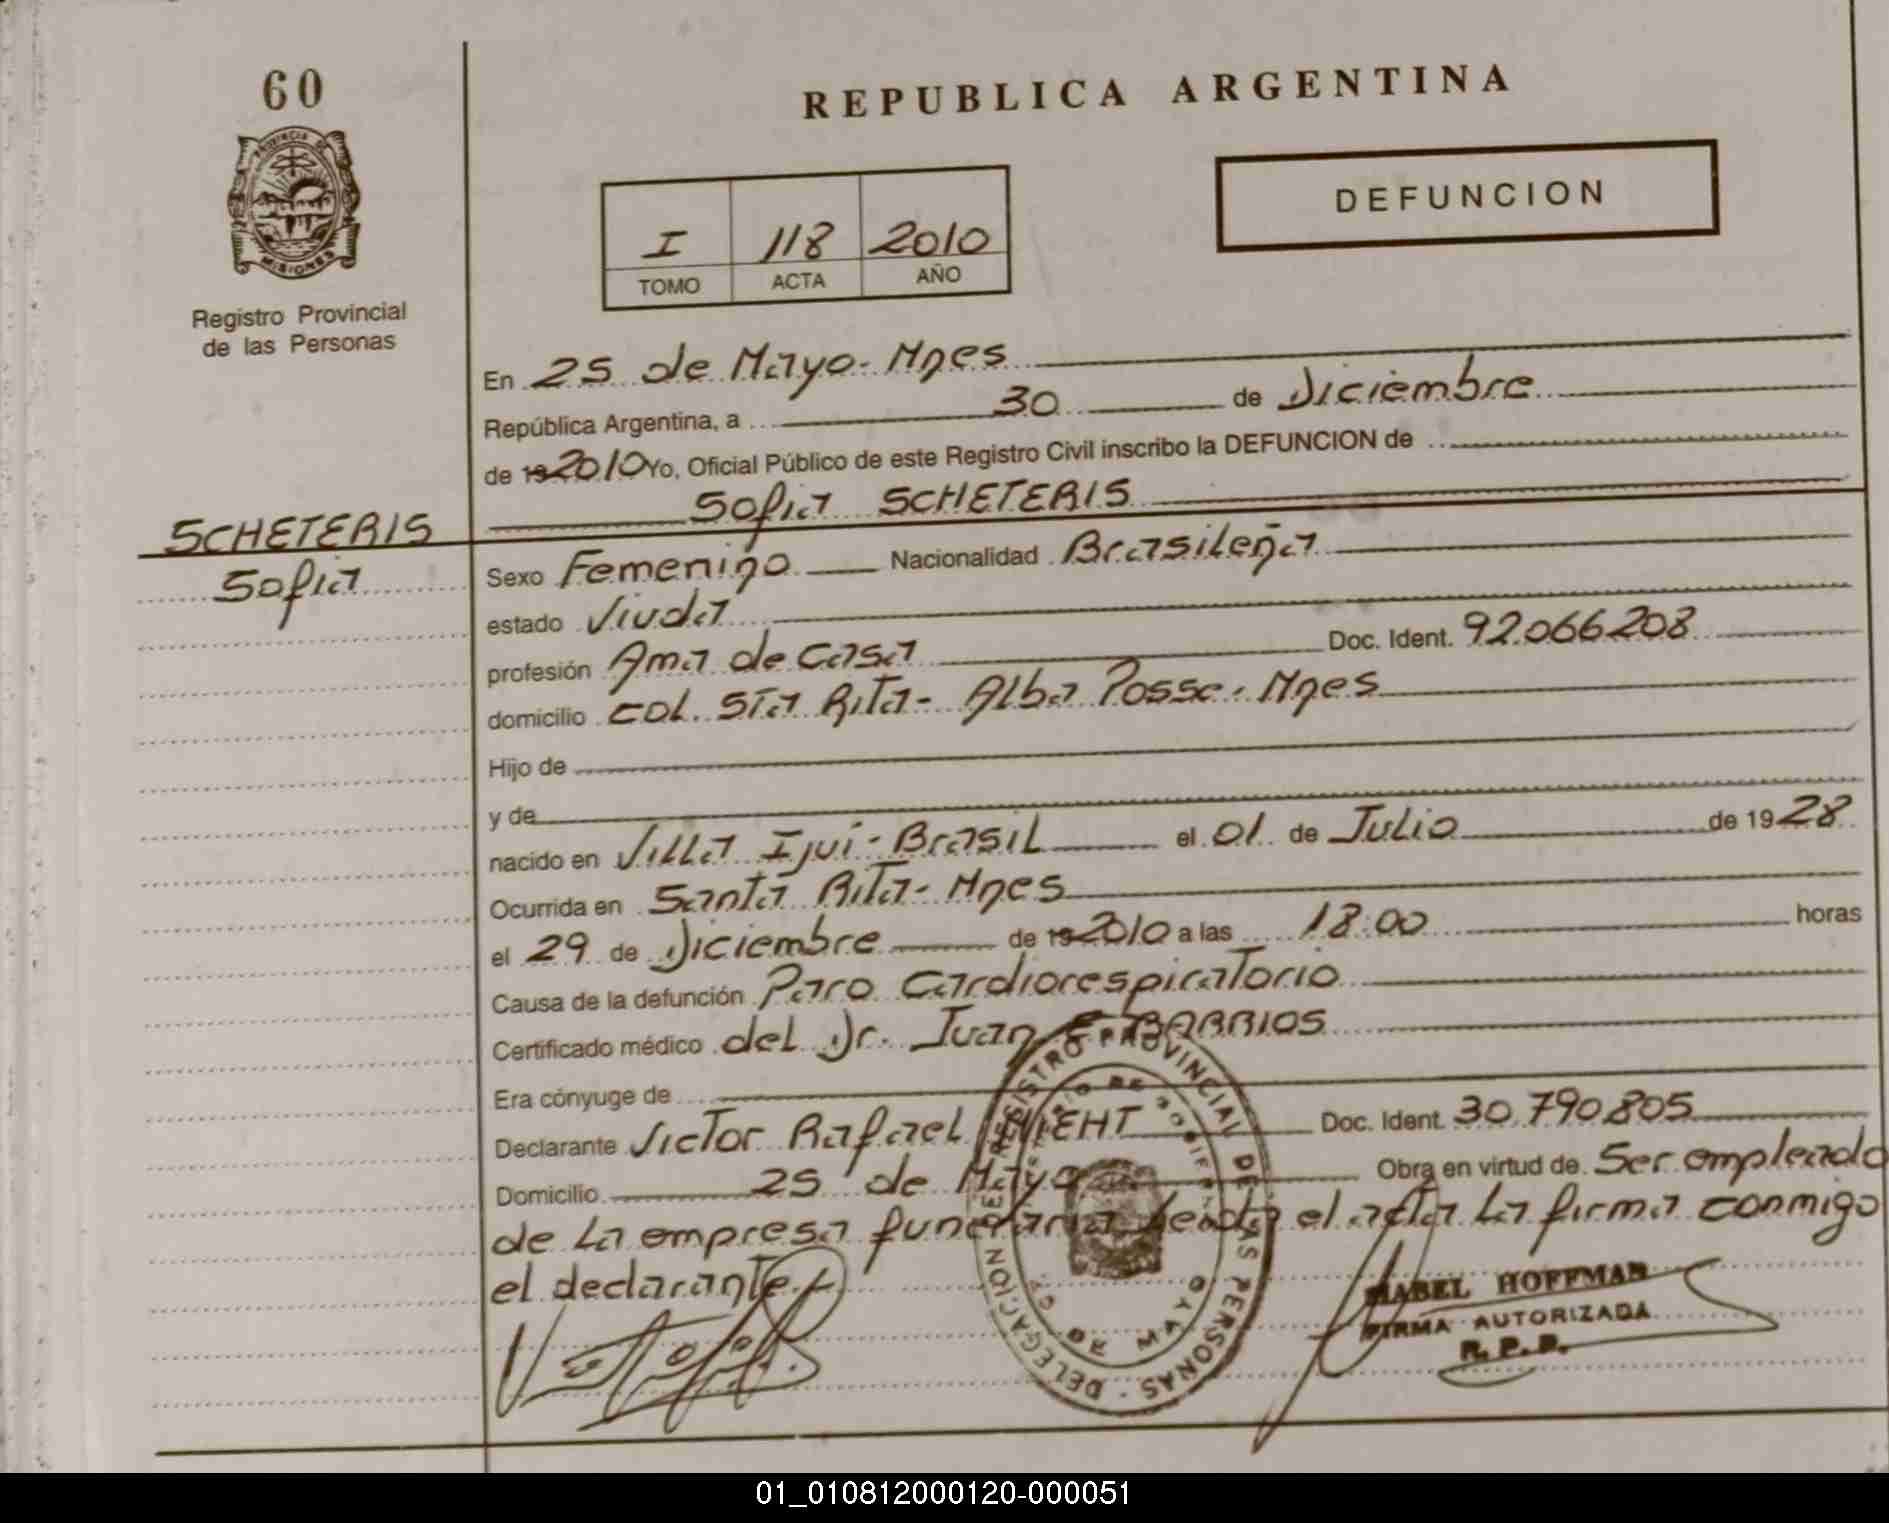 60
REPUBLICA ARGENTINA
PROVINCIA DE
MISIONES
Registro Provincial
de las Personas
DEFUNCION
I 118 2010
TOMO ACTA AÑO
En 25 de Mayo - Mnes
República Argentina, a 30 de Diciembre
de 19 2010 Yo, Oficial Público de este Registro Civil inscribo la DEFUNCION de
Sofia SCHETERIS
SCHETERIS
Sofia
Sexo Femenino Nacionalidad Brasileña
estado Viuda
profesión Ama de casa Doc. Ident. 92.066208
domicilio col. Sta Rita - Alba Posse - Mnes
Hijo de
y de
nacido en Villa Ijui - Brasil el 01 de Julio de 1928
Ocurrida en Santa Rita - Mnes
el 29 de Diciembre de 19 2010 a las 18:00 horas
Causa de la defunción Paro Cardiorespiratorio
Certificado médico del Dr. Juan E. BARRIOS
Era cónyuge de
Declarante Victor Rafael Doc. Ident. 30.790.805
Domicilio 25 de Mayo Obra en virtud de Ser empleado
de la empresa funeraria Leida el acta la firma conmigo
el declarante
REGISTRO PROVINCIAL DE LAS PERSONAS - DELEGACION
25 DE MAYO
MABEL HOFFMAN
FIRMA AUTORIZADA
R. P. P.
01_010812000120-000051